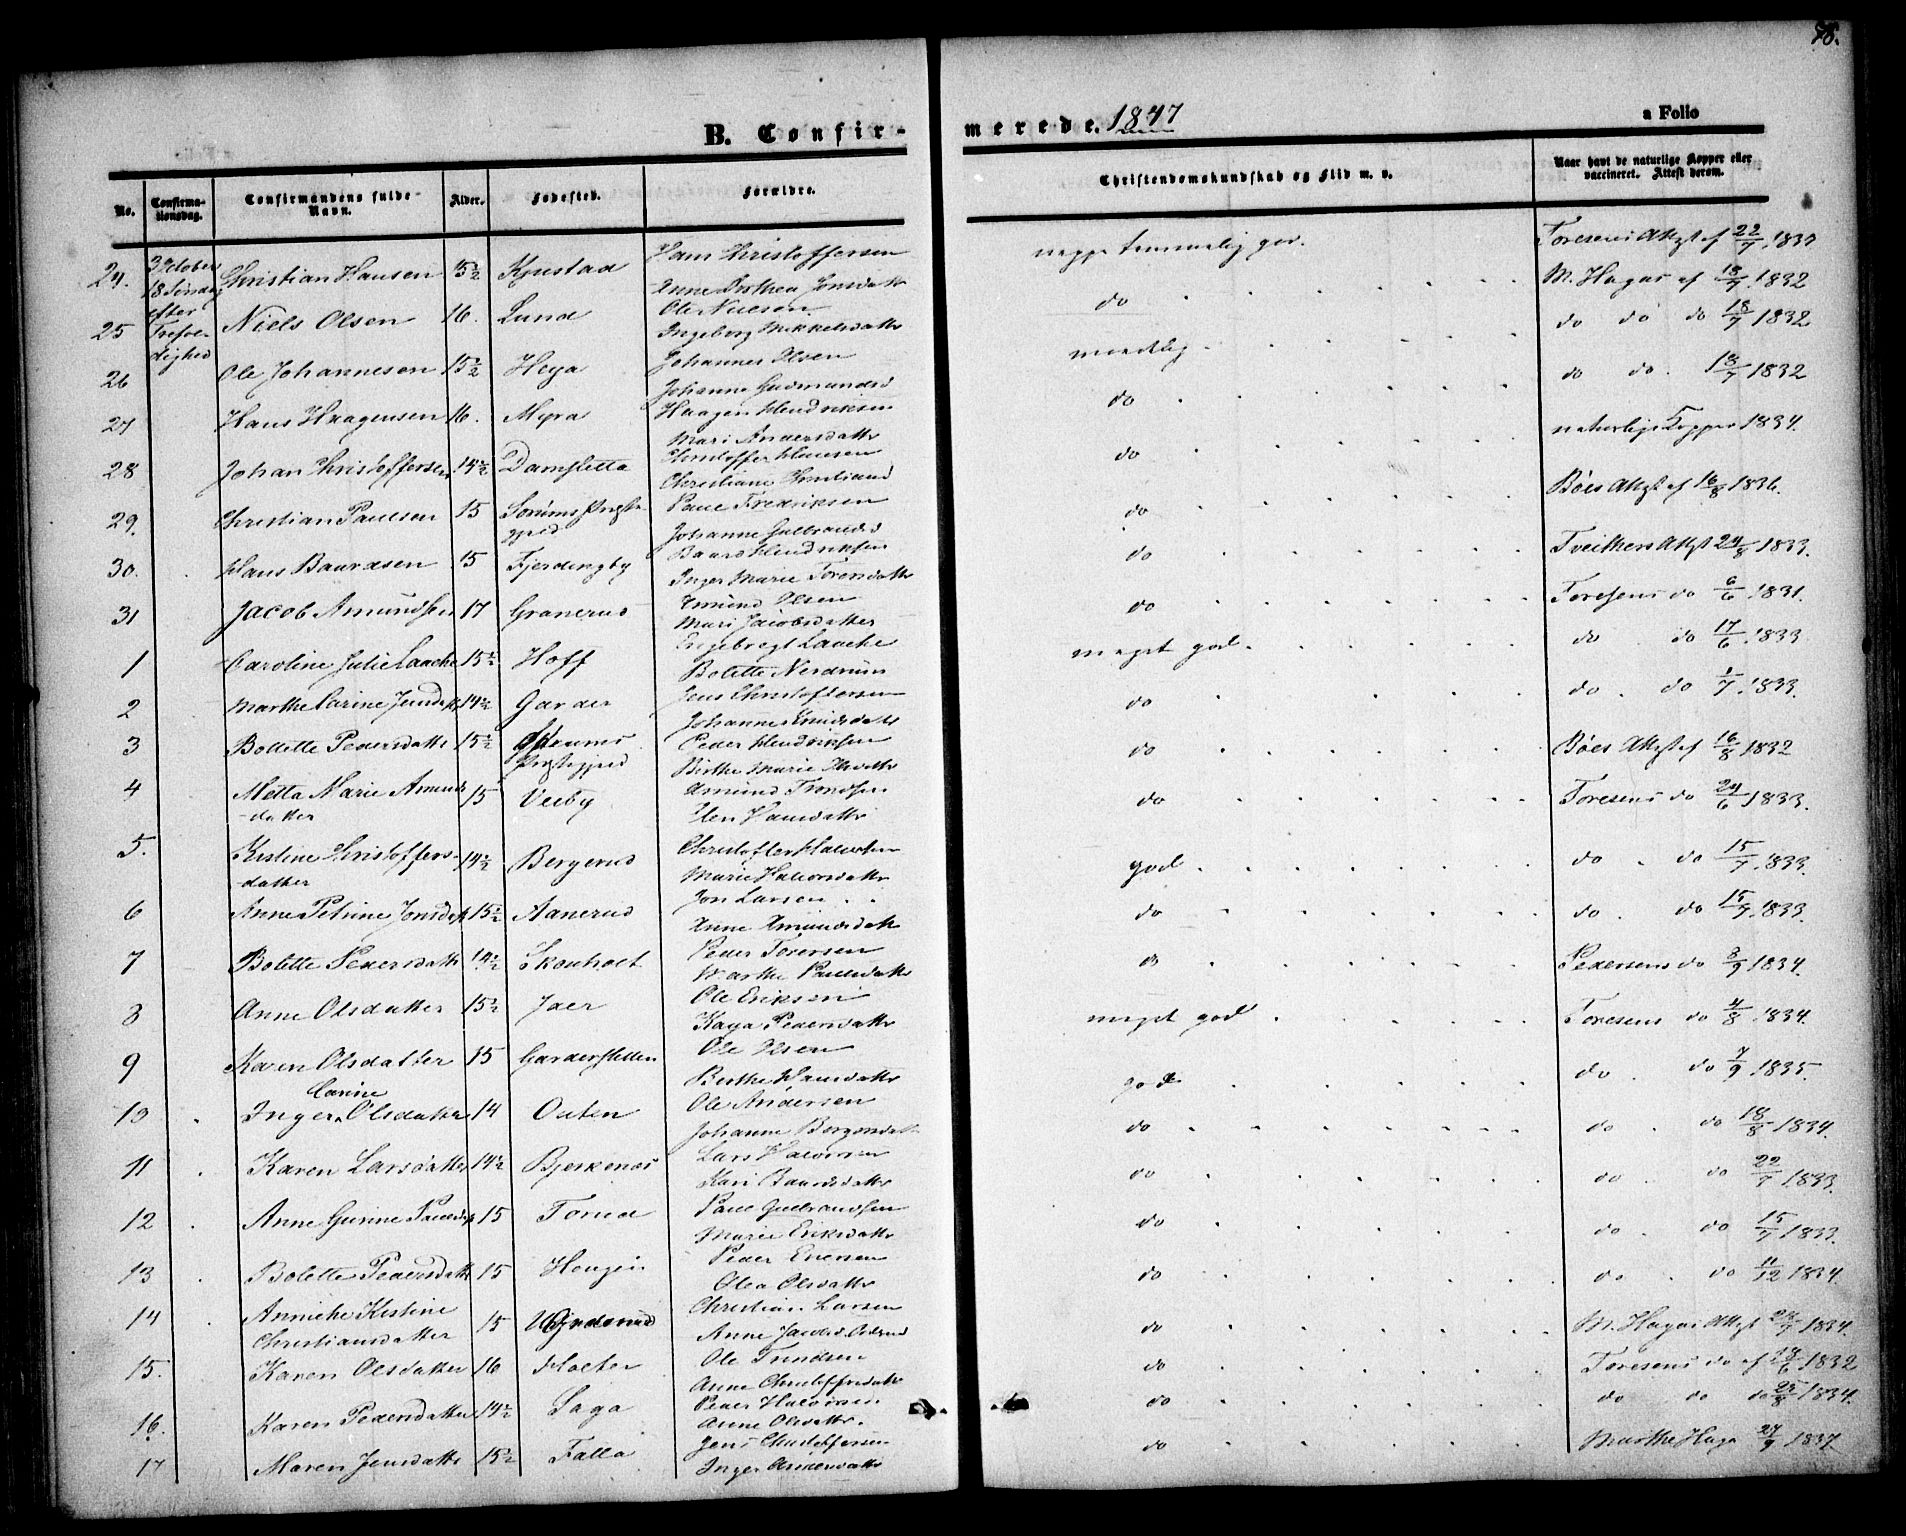 78.
B. Confir-
merede. 1847
a Folio
No.
Confirma-
tionsdag.
Confirmandens fulde
Navn.
Alder.
Fødested.
Forældre.
Christendomskundskab og Flid m. v.
Naar havt de naturlige Kopper eller
vaccineret. Attest derom.
3 October
18 Søndag
efter
Trefol-
dighed
24. Christian Hansen 15½ Hans Christoffersen
Anne Dorthea Jonsdattr
temmelig god. Foresens Attest af 22/7 1833
25 Niels Olsen 16. Lund Ole Nielsen
Ingeborg Mikkelsdattr
do M. Hagas af 18/7 1832
26 Ole Johannesen 15½ Heya Johannes Olsen
Johanne Gudmundsd
maadelig do do do 18/7 1832
27 Hans Haagensen 16. Myra Haagen Hendriksen
Mari Andersdattr
do do do. 18/7 1832
28 Johan Christoffersen 14½ Damsletta Christoffer Hansen
Christiane Christiansd
do naturlige Kopper 1834.
29. Christian Paulsen 15 Sørums Præste-
gjeld Paul Fredriksen
Johanne Gulbrandsd
do Bøes Attest af 16/8 1836.
30. Hans Baardsen 15 Fjerdingby Baard Hendriksen
Inger Marie Toresdattr
do Tveithers Attest 24/8 1833.
31 Jacob Amundsen 17 Granerud Amund Olsen
Mari Jacobsdatter
do Foresens do 6/6 1831.
1 Caroline Julie Laache 15½ Hoff Engebregt Laache
Bolette Nerdrum
meget god. do do 17/6 1833.
2 Marthe Carine Jensdatt 14½ Garder Jens Christoffersen
Johanne Knudsdatt
do do. do 1/7 1833.
3 Bollette Pedersdattr 15½ Sørums
Præstegjeld Peder Hendriksen
Birthe Marie
do Bøes Attest af 16/8 1832
4 Metta Marie Amunds
-datter 15 Veiby Amund Trondsen
Elen Hansdattr
do Foresens do 24/6 1833.
5. Kistine Christoffers-
-datter 14½ Bergerud Christoffer Halvorsen
Marie Halvorsdattr
god do do 15/7 1833.
6 Anne Petrine Jonsdatt 15½ Aanerud Jon Larsen
Anne Amundsdatt
do do. do 15/7 1833.
7 Bolette Pedersdattr 14½ Skouholt Peder Toresen
Marthe Paulsdattr
do Pedersens do 3/9 1834.
8 Anne Olsdatter 15½ Jaer Ole Eriksen
Kaya Pedersdattr
meget god Foresens do 4/8 1834.
9 Karen Olsdatter 15 Gardersletten Ole Olsen
Berthe Hansdattr
god do. do 7/9 1835.
10 Inger Carine Olsdatter 14 Outen Ole Andersen
Johanne Borgersdatt
do do. do 18/8 1834.
11 Karen Larsdatter 14½ Bjerkenes Lars Halvorsen
Kari Baardsdattr
do do. do 22/7 1833.
12 Anne Gurine Paulsdatt 15 Torud Paul Gulbrandsen
Marie Eriksdattr
do do. do 15/7 1833.
13 Bolette Pedersdattr 15 Hougen Peder Evensen
Olea Olsdattr
do do. do 11/12 1834.
14 Annicke Kistine
Christiansdatter 15 Christian Larsen
Anne Jacobsd.
do M. Hagas Attest 24/7 1834.
15. Karen Olsdatter 16 Holter Ole Trondsen
Anne Christoffersdattr
do Foresens do af 18/6 1832
16. Karen Pedersdatter 14½ Saga Peder Halvorsen
Anne Olsdattr.
do do do do 25/8 1834.
17 Maren Jensdattr 15½ Falla Jens Christoffersen
Inger Andersdattr
do Marthe Haga 24/9 1837